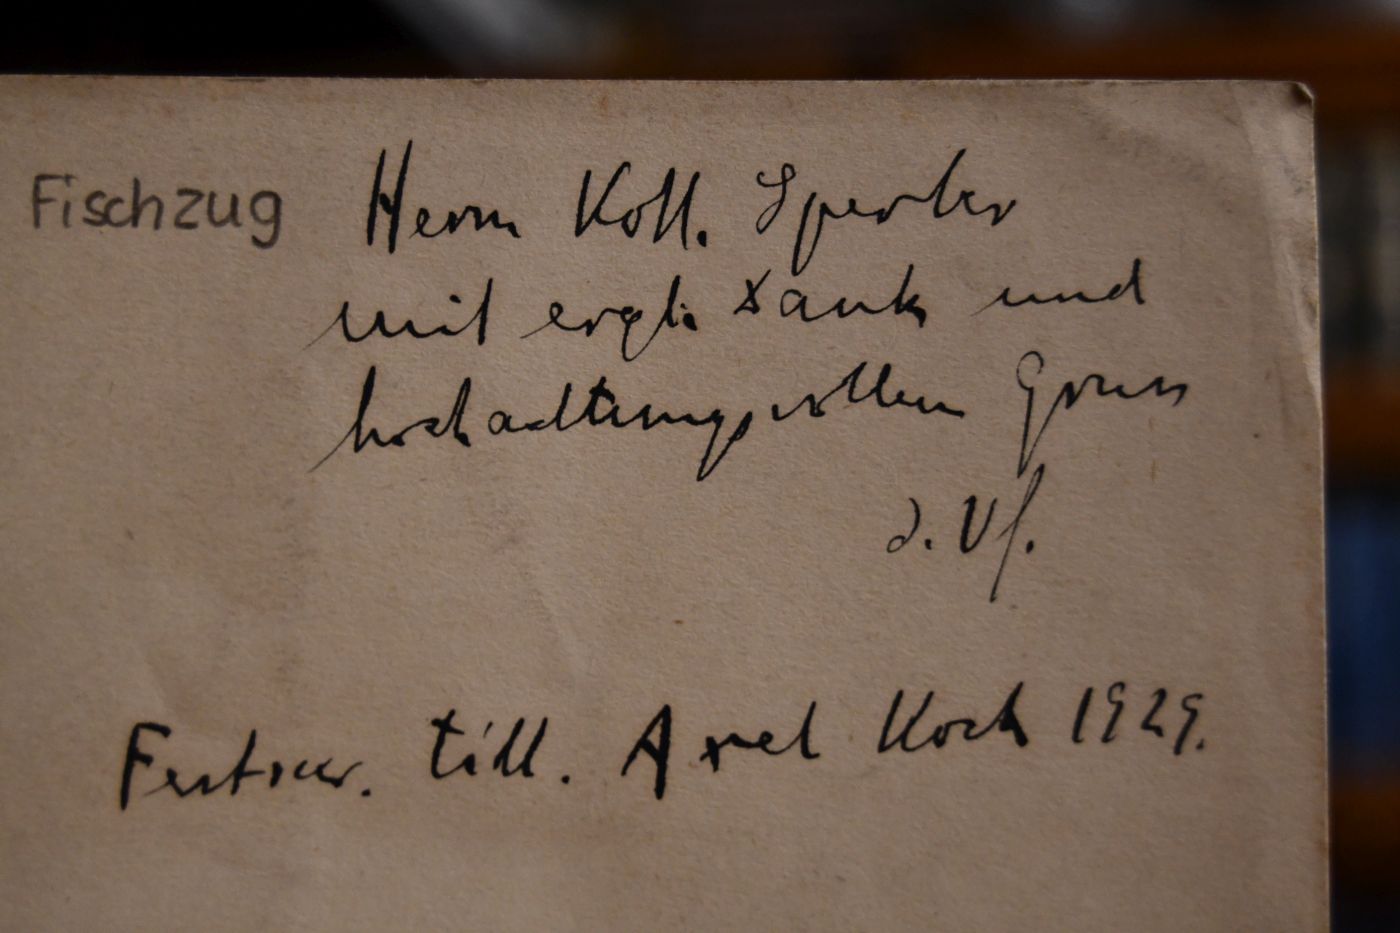 Fischzug
Herrn Koll. Sperber
mit ergb. Dank und
hochachtungsvollem Gruss
d. Vf.
Festskr. till. Axel Kock 1929.